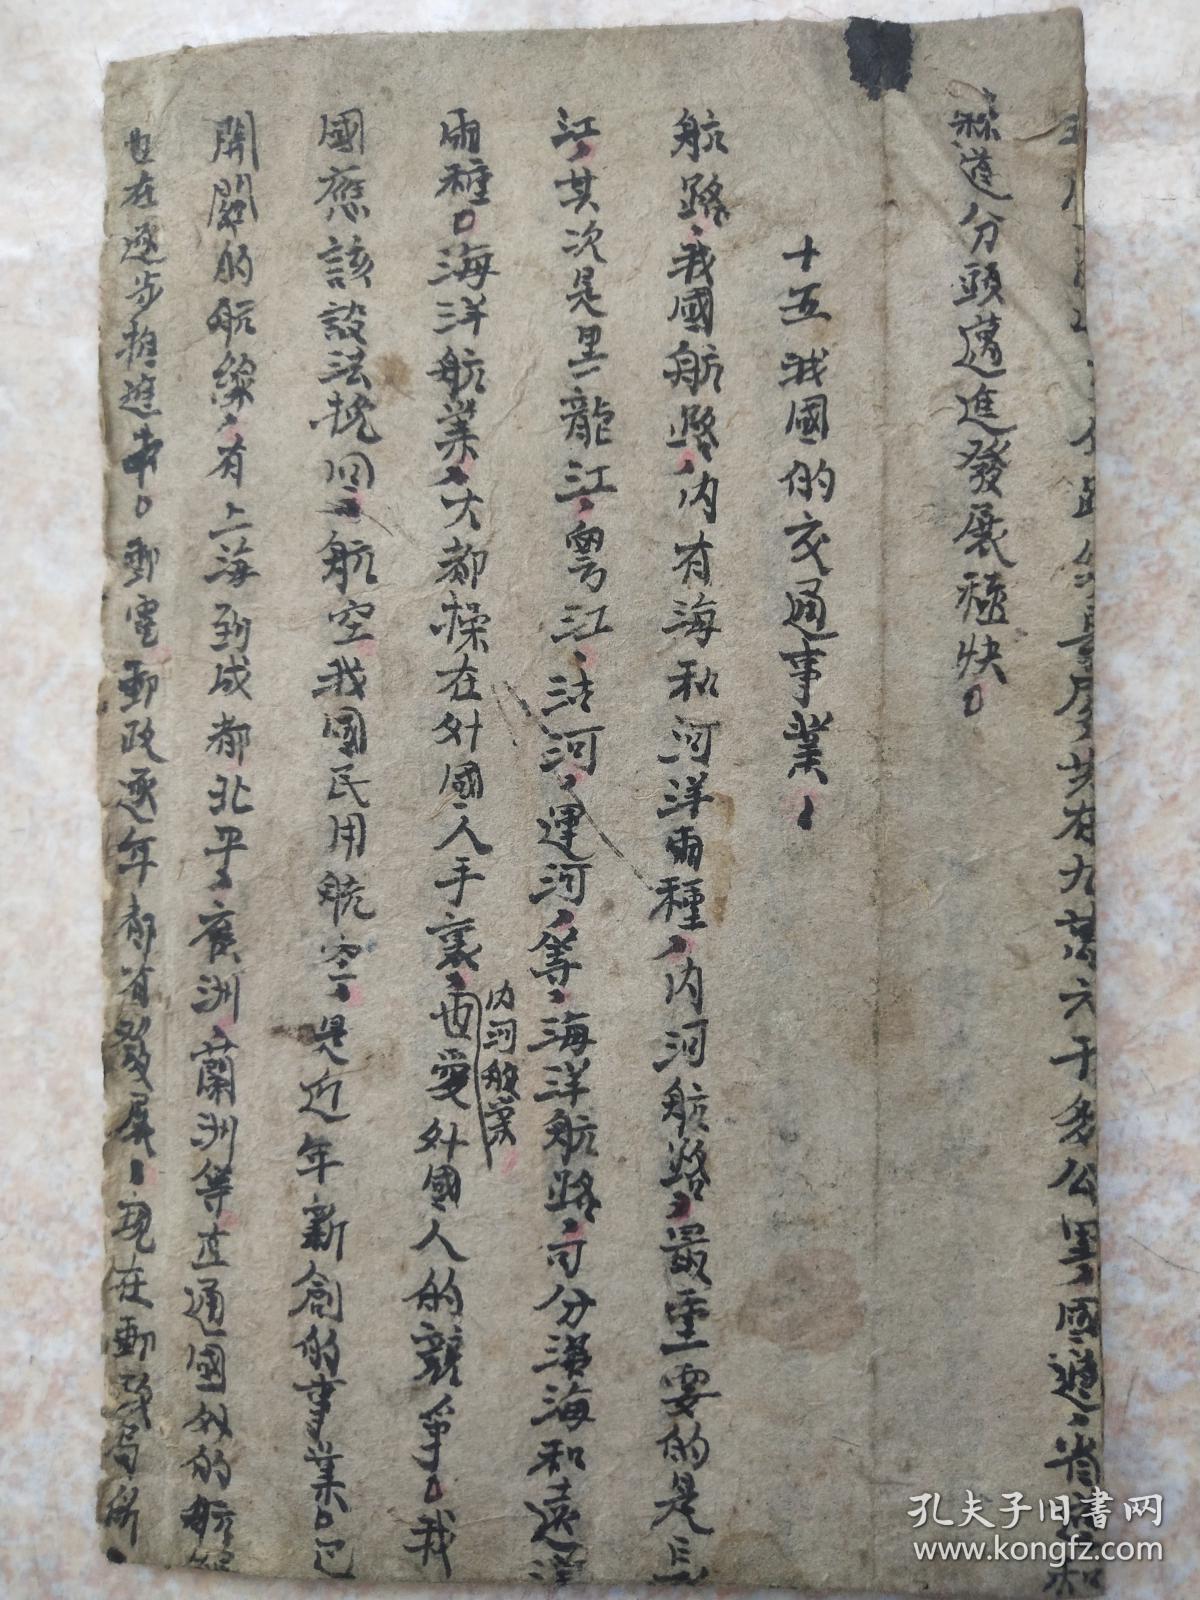 共有九萬六千多公里、國道、省道和
縣道分頭邁進發展極快。
十五 我國的交通事業、
航路、我國航路、內有海和河洋兩種、內河航路、最重要的是長
江、其次是黑龍江、粵江、沽河、運河、等、海洋航路、可分沿海和遠洋
兩種。海洋航業、大都操在外國人手裏、內河航業也受外國人的競爭。我
國應該設法挽回、航空我國民用航空、是近年新創的事業。已
開闢的航線、有上海到成都北平、廣洲、蘭洲等直通國外的航線
也在逐步推進中。郵電郵政逐年都有發展、現在郵政局所
孔夫子旧書网
www.kongfz.com